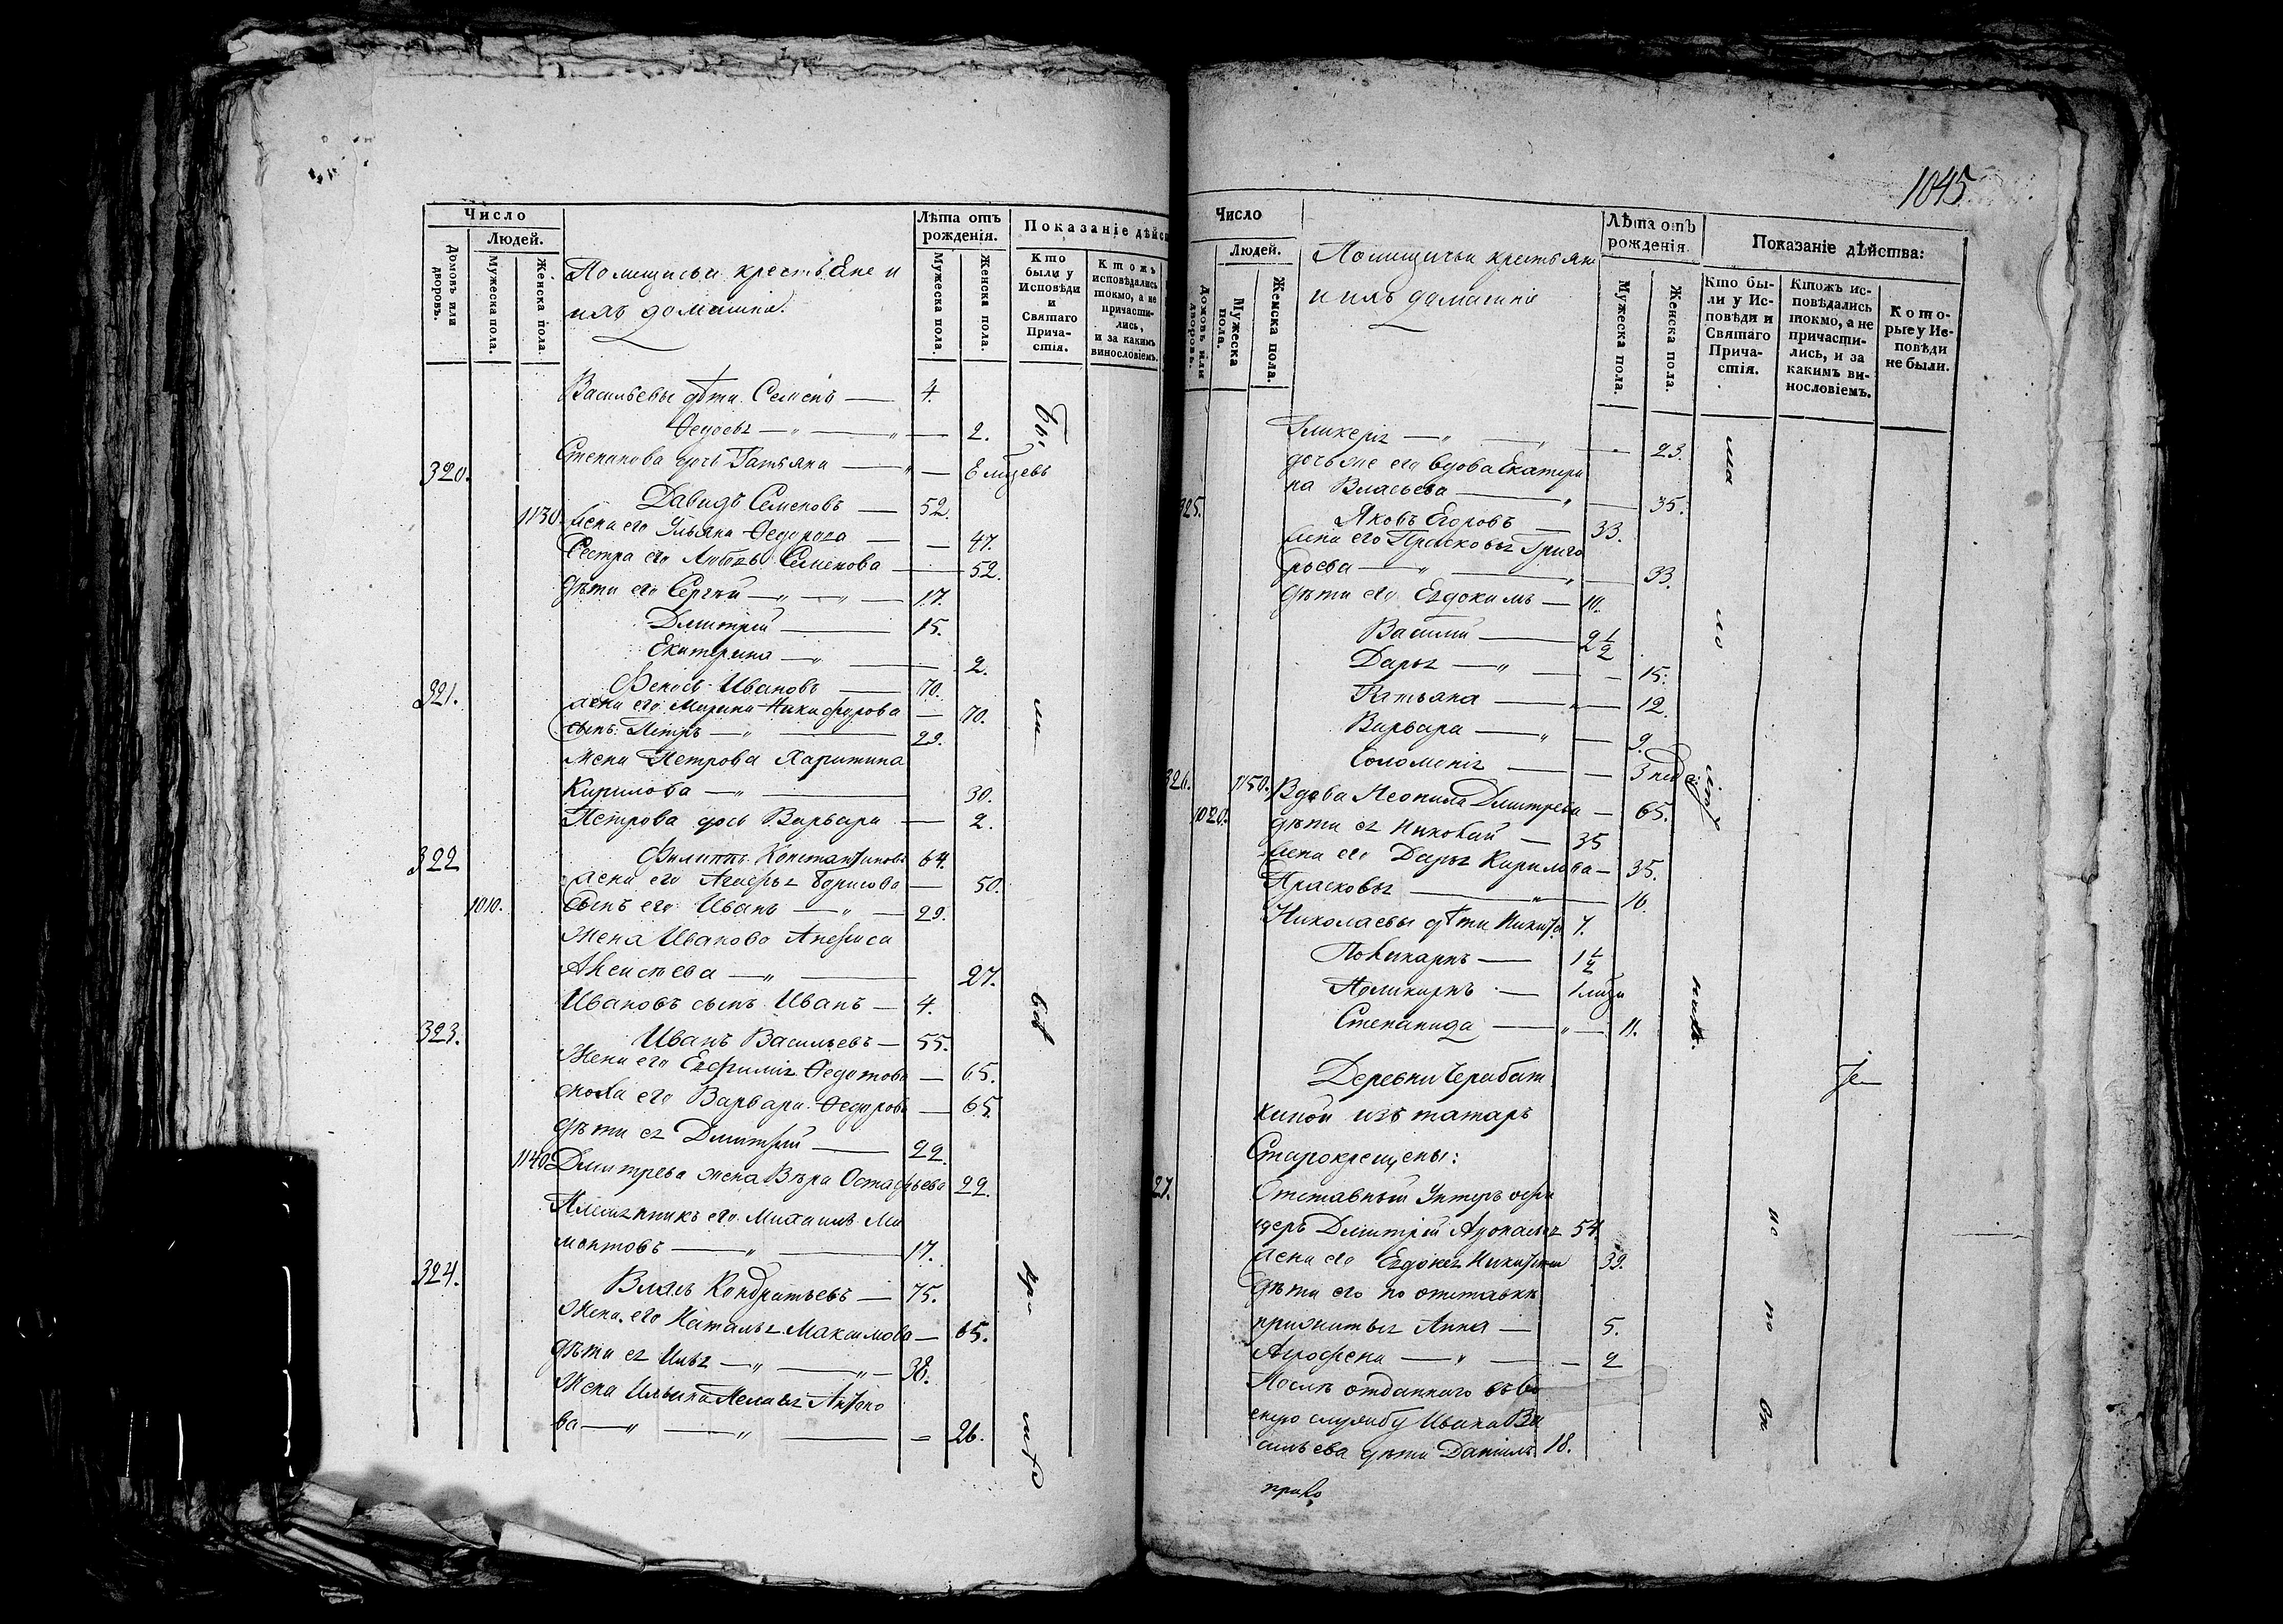 Число
Людей.
Домовъ или дворовъ.
Мужеска пола.
Женска пола.
Помещичьи крестьяне и
ихъ домашніе.
Лѣта отъ рожденія.
Мужеска пола.
Женска пола.
Показаніе дѣйс
Кто были у Исповѣди и Святаго Прича-стія.
Ктожъ исповѣдались токмо, а не причасти-лись, и за какимъ винословіемъ.
Васильевы дѣти Семенъ — 4.
— 2.
320. Степанова дочь Татьяна — 6 мцевъ
Давидъ Семеновъ — 52.
1130. жена его Ульяна Ѳедорова — 47.
Сестра его Семенова — 52.
дѣти его Сергѣй — 17.
Дмитрій — 15.
Екатерина — 2.
321. Ивановъ — 70.
жена его Марина Никифорова — 70.
сынъ Петръ — 29.
жена Петрова Харитина
Кирилова — 30.
Петрова дочь Варвара — 2.
322 Филиппъ Константиновъ 64.
жена его Агафья Борисова — 50.
1010. сынъ его Иванъ — 29.
Жена Иванова Анфиса
— 27.
Ивановъ сынъ Иванъ — 4.
323. Иванъ Васильевъ — 55.
Жена его Евфимія Ѳедотова — 65.
сноха его Варвара Ѳедорова — 65.
дѣти ея Дмитрій — 22.
1140 Дмитрева жена Вѣра Остафьева 22.
Племянникъ его Михаилъ Ма
17.
324. Власъ Кондратьевъ — 75.
Жена его Наталья Максимова — 65.
дѣти ея Илья — 38.
Жена Ильина Меланья Антоно
ва — 26.
1045
Число
Людей.
Домовъ или дворовъ.
Мужеска пола.
Женска пола.
Помещичьи крестьяне
и ихъ домашніе
Лѣта отъ рожденія.
Мужеска пола.
Женска пола.
Показаніе дѣйства:
Кто бы-ли у Ис-повѣди и Святаго Прича-стія.
Ктожъ ис-повѣдались токмо, а не причасти-лись, и за какимъ ви-нословіемъ.
Кото-рые у Ис-повѣди не были.
Гликерія — 23.
дочь же его вдова Екатери
на Власьева — 35.
325. Яковъ Егоровъ — 33.
жена его Прасковья Григо
рьева — 33.
дѣти его Евдокимъ — 10.
Василій — 2½
Дарья — 15.
Татьяна — 12.
Варвара — 9.
Соломонія — 3 нед
326. 1150. Вдова Неонила Дмитрева — 65.
1020. дѣти ея Николай — 35
жена его Дарья Кирилова — 35.
Прасковья — 10.
Николаевы дѣти Никита 7.
Поликарпъ — 1½
Поликарпъ — 1 мца
Степанида — 11.
Деревни
изъ татаръ
Старокрещены:
27. Отставный Унтеръ офи
церъ Дмитрій 54.
жена его Евдокея Никитина 39.
дѣти его по отставкѣ
прижитыя Анна — 5.
Агрофена — 2
Послѣ отданнаго въ во
енную службу Ивана Ва
сильева дѣти Даніилъ 18.